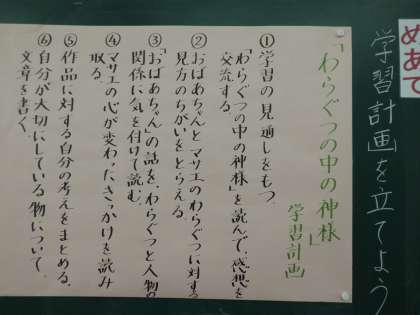 めあて
学習計画を立てよう
「わらぐつの中の神様」
学習計画
①学習の見通しをもつ。
「わらぐつの中の神様」を読んで、感想を
交流する。
②おばあちゃんとマサエのわらぐつに対する
見方のちがいをとらえる。
③「おばあちゃん」の話を、わらぐつと人物の
関係に気を付けて読む。
④マサエの心が変わったきっかけを読み
取る。
⑤作品に対する自分の考えをまとめる。
⑥自分が大切にしている物について、
文章を書く。